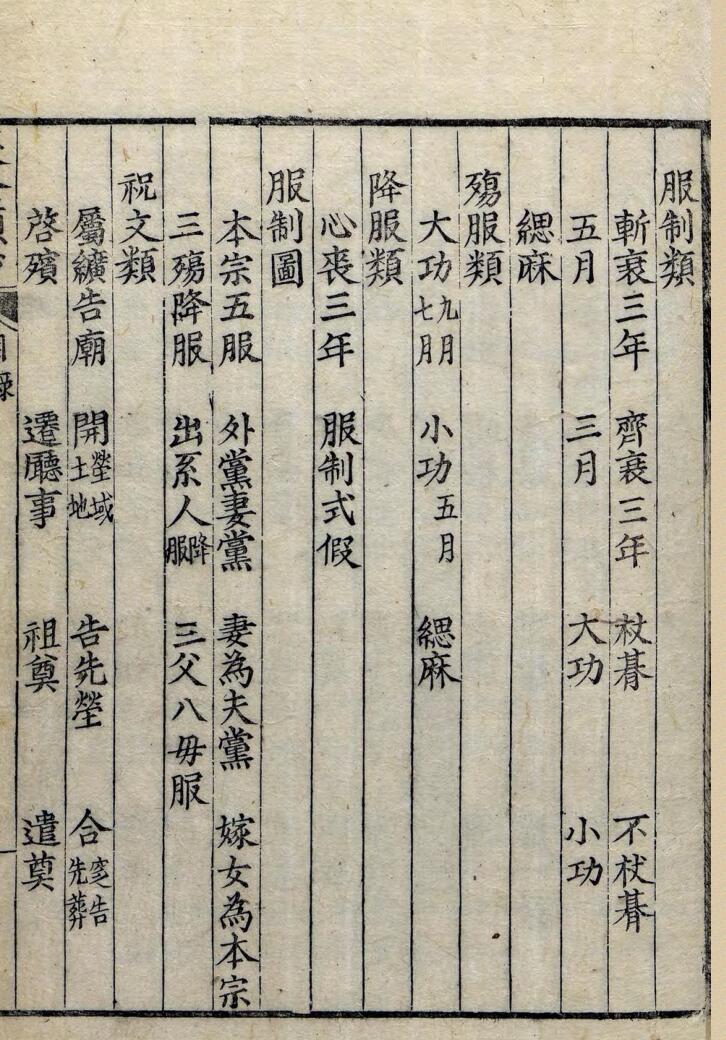 服制類
斬衰三年 齊衰三年 杖朞 不杖朞
五月 三月 大功 小功
緦麻
殤服類
大功九月七月 小功五月 緦麻
降服類
心喪三年 服制式假
服制圖
本宗五服 外黨妻黨 妻為夫黨 嫁女為本宗
三殤降服 出系人降服 三父八毋服
祝文類
屬纊告廟 開塋域土地 告先塋 合窆告先葬
啓殯 遷廳事 祖奠 遣奠
目錄